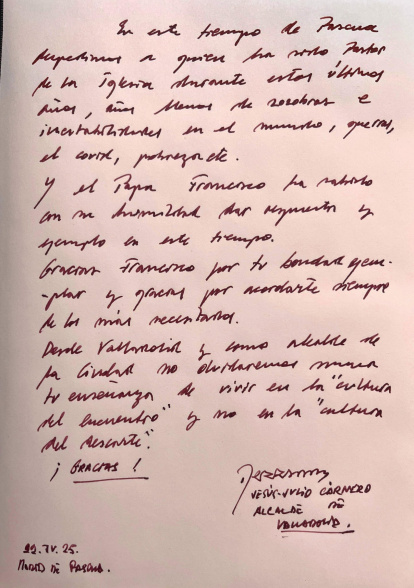 En este tiempo de Pascua
despedimos a quien ha sido Pastor
de la Iglesia durante estos últimos
años, años llenos de zozobras e
inestabilidades en el mundo, guerras,
el covid, pobreza, etc.
Y el Papa Francisco ha sabido
con su humildad dar respuesta y
ejemplo en este tiempo.
Gracias Francisco por tu bondad ejem-
-plar y gracias por acordarte siempre
de los más necesitados.
Desde Valladolid y como alcalde de
la Ciudad no olvidaremos nunca
tu enseñanza de vivir en la "cultura
del encuentro" y no en la "cultura
del descarte".
¡GRACIAS!
JESÚS-JULIO CARNERO
ALCALDE DE
VALLADOLID.
22.IV.25.
MARTES DE PASCUA.